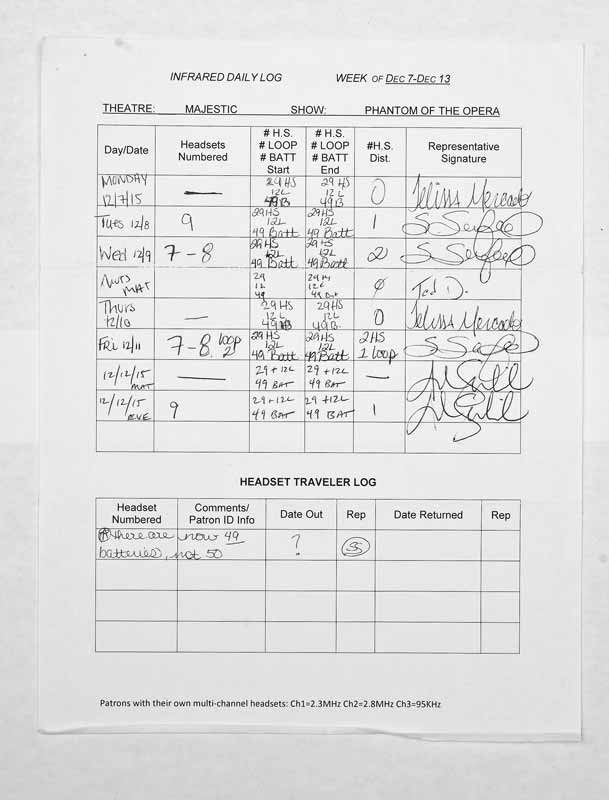 INFRARED DAILY LOG WEEK OF DEC 7-DEC 13
THEATRE: MAJESTIC SHOW: PHANTOM OF THE OPERA
Day/Date Headsets Numbered # H.S. # LOOP # BATT Start # H.S. # LOOP # BATT End #H.S. Dist. Representative Signature
MONDAY 12/7/15 — 29 HS 12L 49 B 29 HS 12L 49 B 0 Melissa Mercado
Tues 12/8 9 29 HS 12L 49 Batt 29 HS 12L 49 Batt 1
Wed 12/9 7-8 29 HS 12L 49 Batt 29 HS 12L 49 Batt 2
MAT 29 12 49 29 12 49 Ø Ted D.
Thurs 12/10 — 29 HS 12 L 49 B 29 HS 12L 49 B. 0 Melissa Mercado
Fri 12/11 7-8, loop 2 29 HS 12L 49 Batt 29 HS 12L 49 Batt 2 HS 1 loop
12/12/15 MAT — 29 + 12L 49 BAT 29 + 12L 49 BAT —
12/12/15 EVE 9 29 + 12L 49 BAT 29 + 12L 49 BAT 1
HEADSET TRAVELER LOG
Headset Numbered Comments/ Patron ID Info Date Out Rep Date Returned Rep
there are now 49 batteries, not 50 ? SS
Patrons with their own multi-channel headsets: Ch1=2.3MHz Ch2=2.8MHz Ch3=95KHz